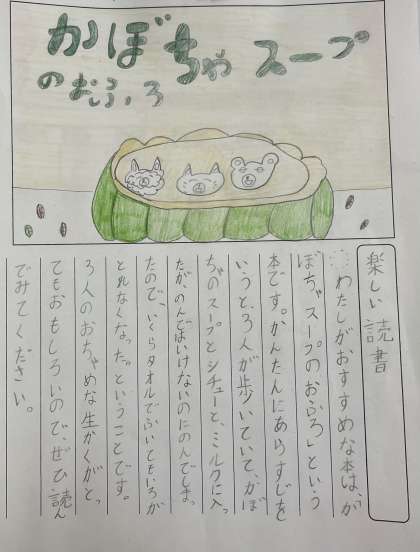 かぼちゃスープ
のおふろ
楽しい読書
わたしがおすすめな本は、「か
ぼちゃスープのおふろ」という
本です。かんたんにあらすじを
いうと、3人が歩いていて、かぼ
ちゃのスープとシチューと、ミルクに入っ
たが、のんではいけないのにのんでしまっ
たので、いくらタオルでふいてもいろが
とれなくなった。ということです。
3人のおちゃめな生かくがと
てもおもしろいので、ぜひ読ん
でみてください。